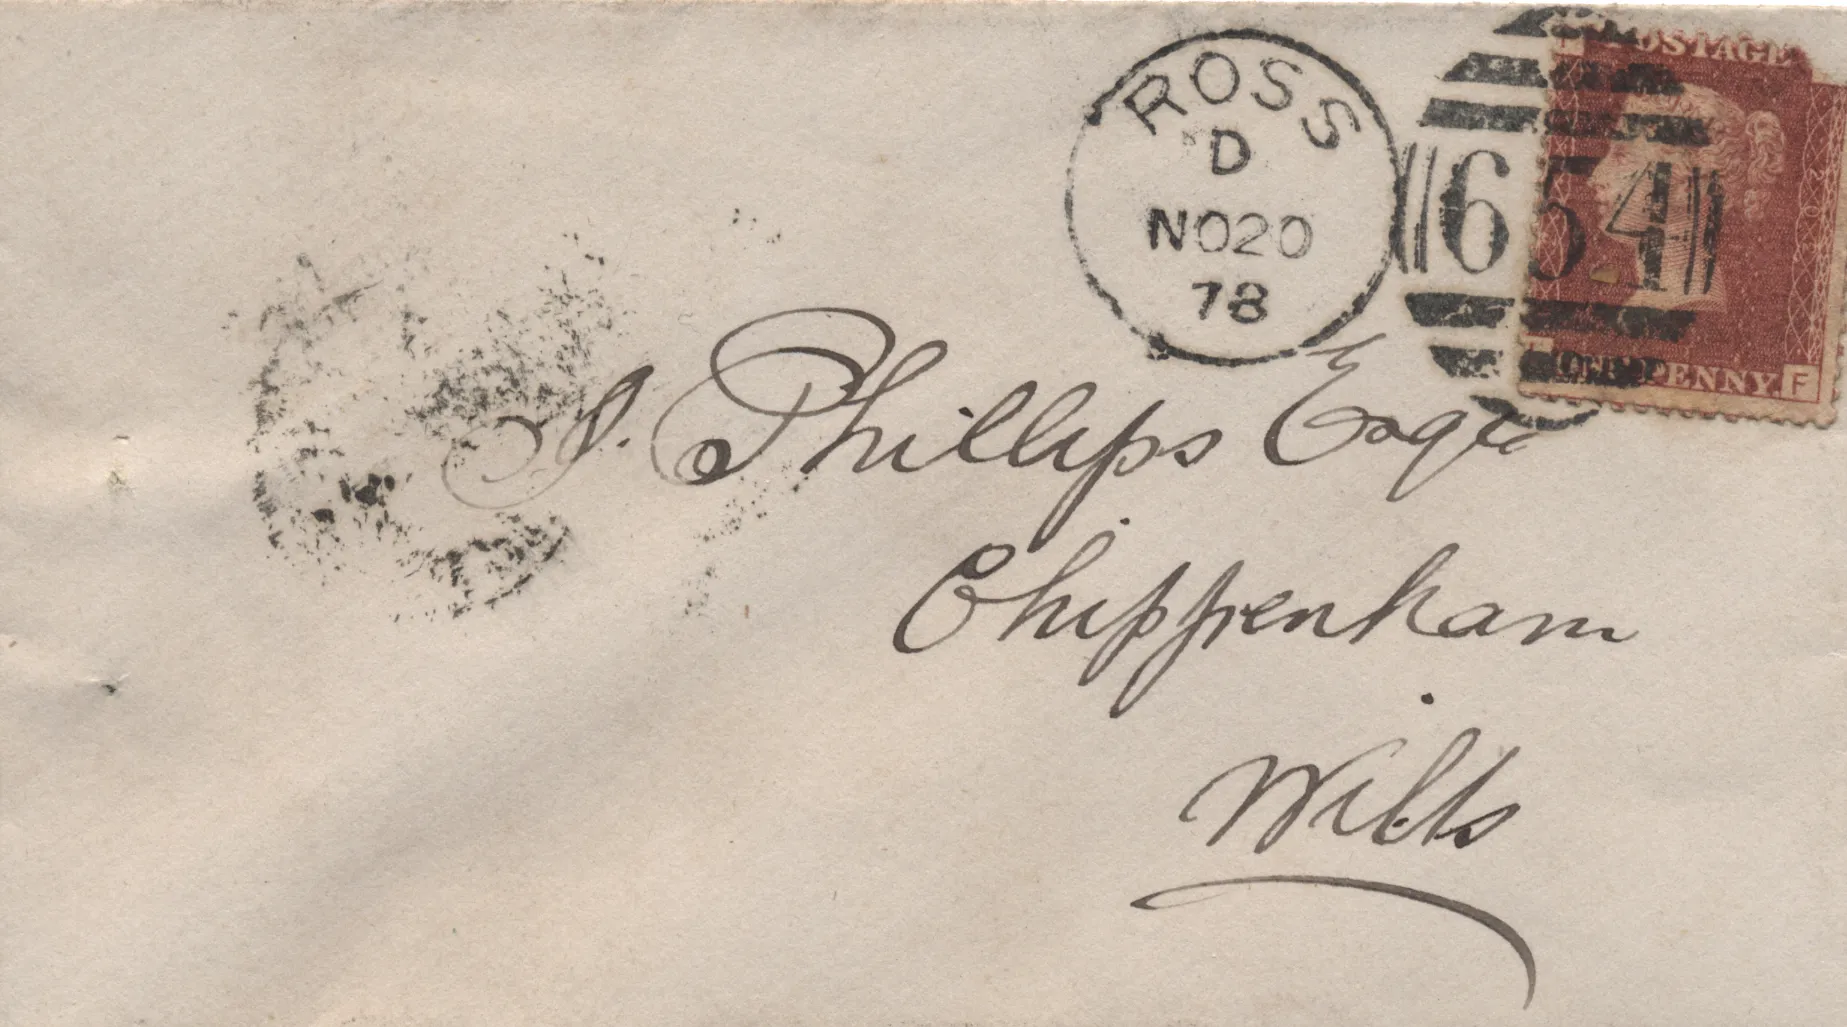 POSTAGE
ROSS
D
NO20
78
654
ONE PENNY. F
J. Phillips Esqre
Chippenham
Wilts